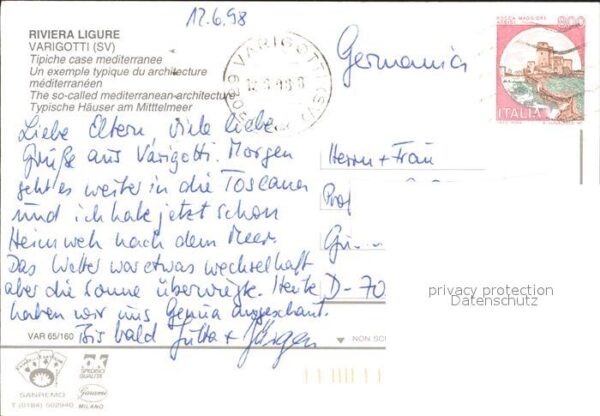 12.6.98
RIVIERA LIGURE
VARIGOTTI (SV)
Tipiche case mediterranee
Un exemple typique du architecture
méditerranéen
The so-called mediterranean-architecture
Typische Häuser am Mitttelmeer
VARIGOTTI (SV)
Germania
ROCCA MAGGIORE
ASSISI
800
ITALIA
Liebe Eltern, viele liebe
Grüße aus Varigotti. Morgen
geht es weiter in die Toscana
und ich habe jetzt schon
Heimweh nach dem Meer.
Das Wetter war etwas wechselhaft
aber die Sonne überwiegte. Heute
haben wir uns Genua angeschaut.
Bis bald Jutta + Jürgen
Herrn + Frau
Prof
D-70
privacy protection
Datenschutz
VAR 65/160
NON SC
SANREMO
T (0184) 502940
MILANO